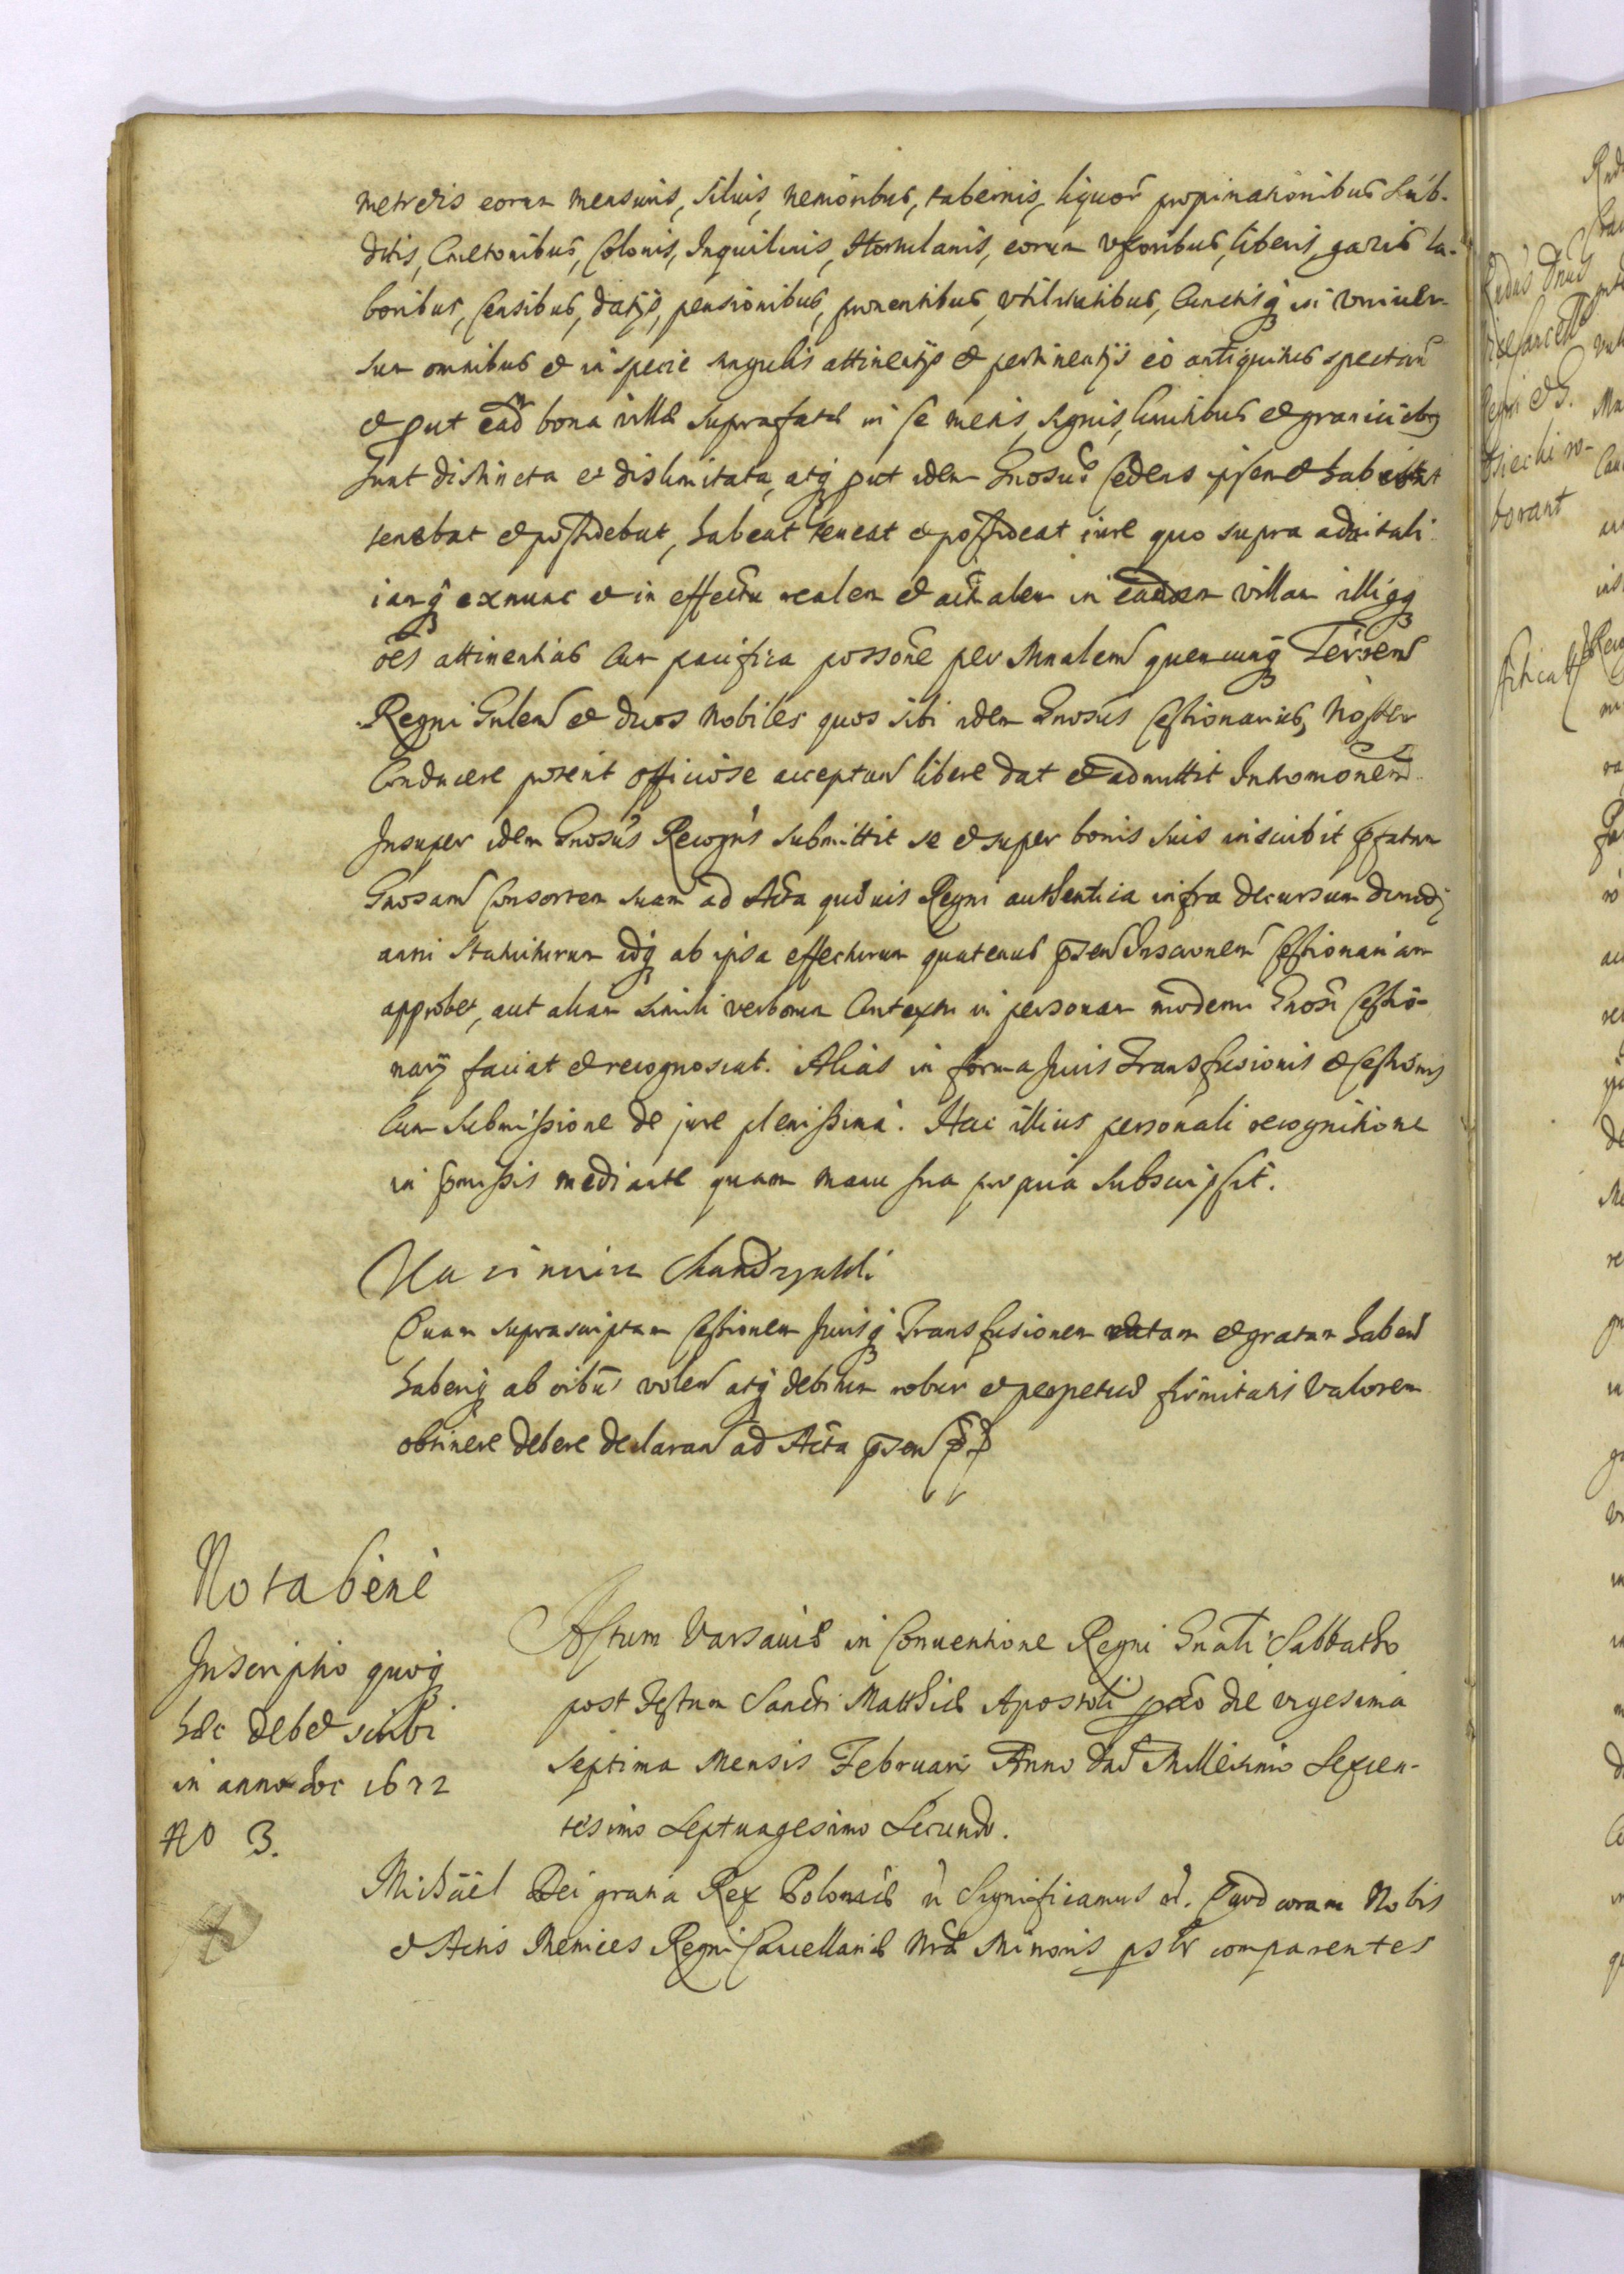 metretis eorum mensuris, siluis, nemoribus, tabernis, liquor propinationibus Sub-
ditis, Cmetonibus, Colonis, Inquilinis, Hortulanis, eorum vxoribus, liberis, gazis la-
boribus, Censibus, datijs, pensionibus, prouentibus, vtilitatibus, Cunctisq in vniuer-
sum omnibus et in specie singulis attinentijs et pertinentijs eo antiquitus spectan
et put ead bona villae suprafatae in se metis, signis, limitibus et graniciebus
sunt distincta et dislimitata, atq put idem Gnosus Cedens ipsemet hab
tenebat et possidebat, habeat teneat et possideat iure quo supra aduitali
iamq exnunc et in effectu realem et actualem in eandem villam illiqq
oes attinentias cum pacifica possone per Mnalem quemcunq Terren
Regni Gnlem et duos Nobiles quos sibi idem Gnosus Cessionarius, Noster
Conducere poterit officiose acceptan libere dat et admittit Intromonem.
Insuper idem Gnosus Recogns submittit se et super bonis suis inscribit pfatam
Gnosam Consortem suam ad Acta quaeuis Regni authentica infra decursum dimidij
anni staturum idq ab ipsa effecturum quatenus psen Inscronem Cessionariam
approbet, aut aliam simili verborum Contextu in personam moderni Gnosi Cessio-
narij faciat et recognoscat. Alias in forma Juris Transfusionis et Cessionis
Cum submissione de jure plenissima. Hac illius personali recognitione
in pmissis mediante quam manu sua propria subscripsit.
Quam suprascriptam Cessionem Jurisq Transfusionem ratam et gratam haben
haberiq ab oibus volen atq debitum robur et perpetuae firmitatis valorem
obtinere debere declaran ad Acta psen
Nota bene
Inscriptio quoq
haec debet scribi
in anno hoc 1672
No 3.
Actum Varsauiae in Conuentione Regni Gnali Sabbatho
post Festum Sancti Matthiae Apostoli pxo die vigesima
septima Mensis Februarij Anno Dni Millesimo Sexcen-
tesimo Septuagesimo Secundo.
Michael Dei gratia Rex Poloniae Significamus Quod coram Nobis
et Actis Metrices Regni Cancellariae Nrae Minoris psltr comparentes